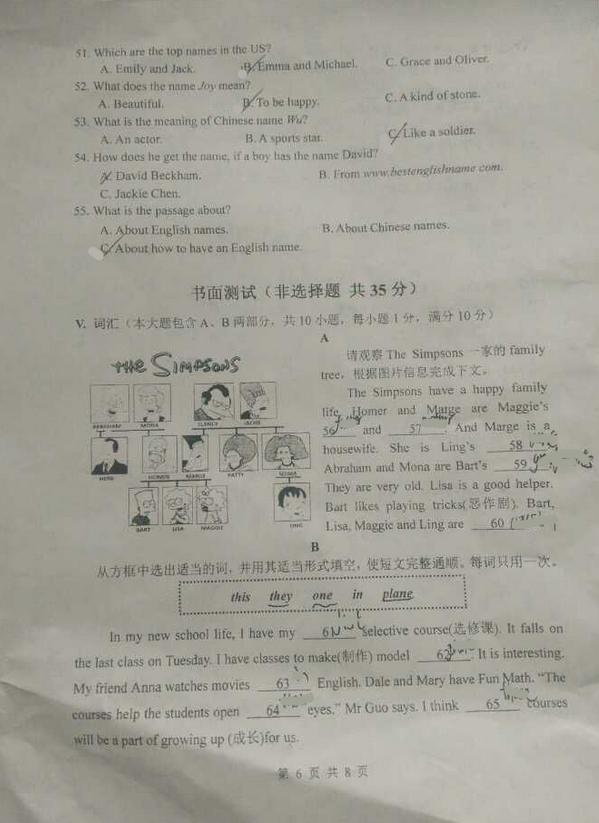 51. Which are the top names in the US?
A. Emily and Jack. B. Emma and Michael. C. Grace and Oliver.
52. What does the name Joy mean?
A. Beautiful. B. To be happy. C. A kind of stone.
53. What is the meaning of Chinese name Wu?
A. An actor. B. A sports star. C. Like a soldier.
54. How does he get the name, if a boy has the name David?
A. David Beckham. B. From www.bestenglishname com.
C. Jackie Chen.
55. What is the passage about?
A. About English names. B. About Chinese names.
C. About how to have an English name.
书面测试（非选择题 共 35 分）
V. 词汇（本大题包含 A、B 两部分，共 10 小题，每小题 1 分，满分 10 分）
A
THE SIMPSONS
ABRAHAM MONA CLANCY JACKIE
HERB HOMER MARGE PATTY SELMA
BART LISA MAGGIE LING
请观察 The Simpsons 一家的 family
tree，根据图片信息完成下文。
The Simpsons have a happy family
life. Homer and Marge are Maggie's
56 and 57 . And Marge is a
housewife. She is Ling's 58
Abraham and Mona are Bart's 59
They are very old. Lisa is a good helper.
Bart likes playing tricks(恶作剧). Bart,
Lisa, Maggie and Ling are 60
B
从方框中选出适当的词，并用其适当形式填空，使短文完整通顺。每词只用一次。
this they one in plane
In my new school life, I have my 61 selective course(选修课). It falls on
the last class on Tuesday. I have classes to make(制作) model 62 . It is interesting.
My friend Anna watches movies 63 English. Dale and Mary have Fun Math. “The
courses help the students open 64 eyes.” Mr Guo says. I think 65 courses
will be a part of growing up (成长)for us.
第 6 页 共 8 页